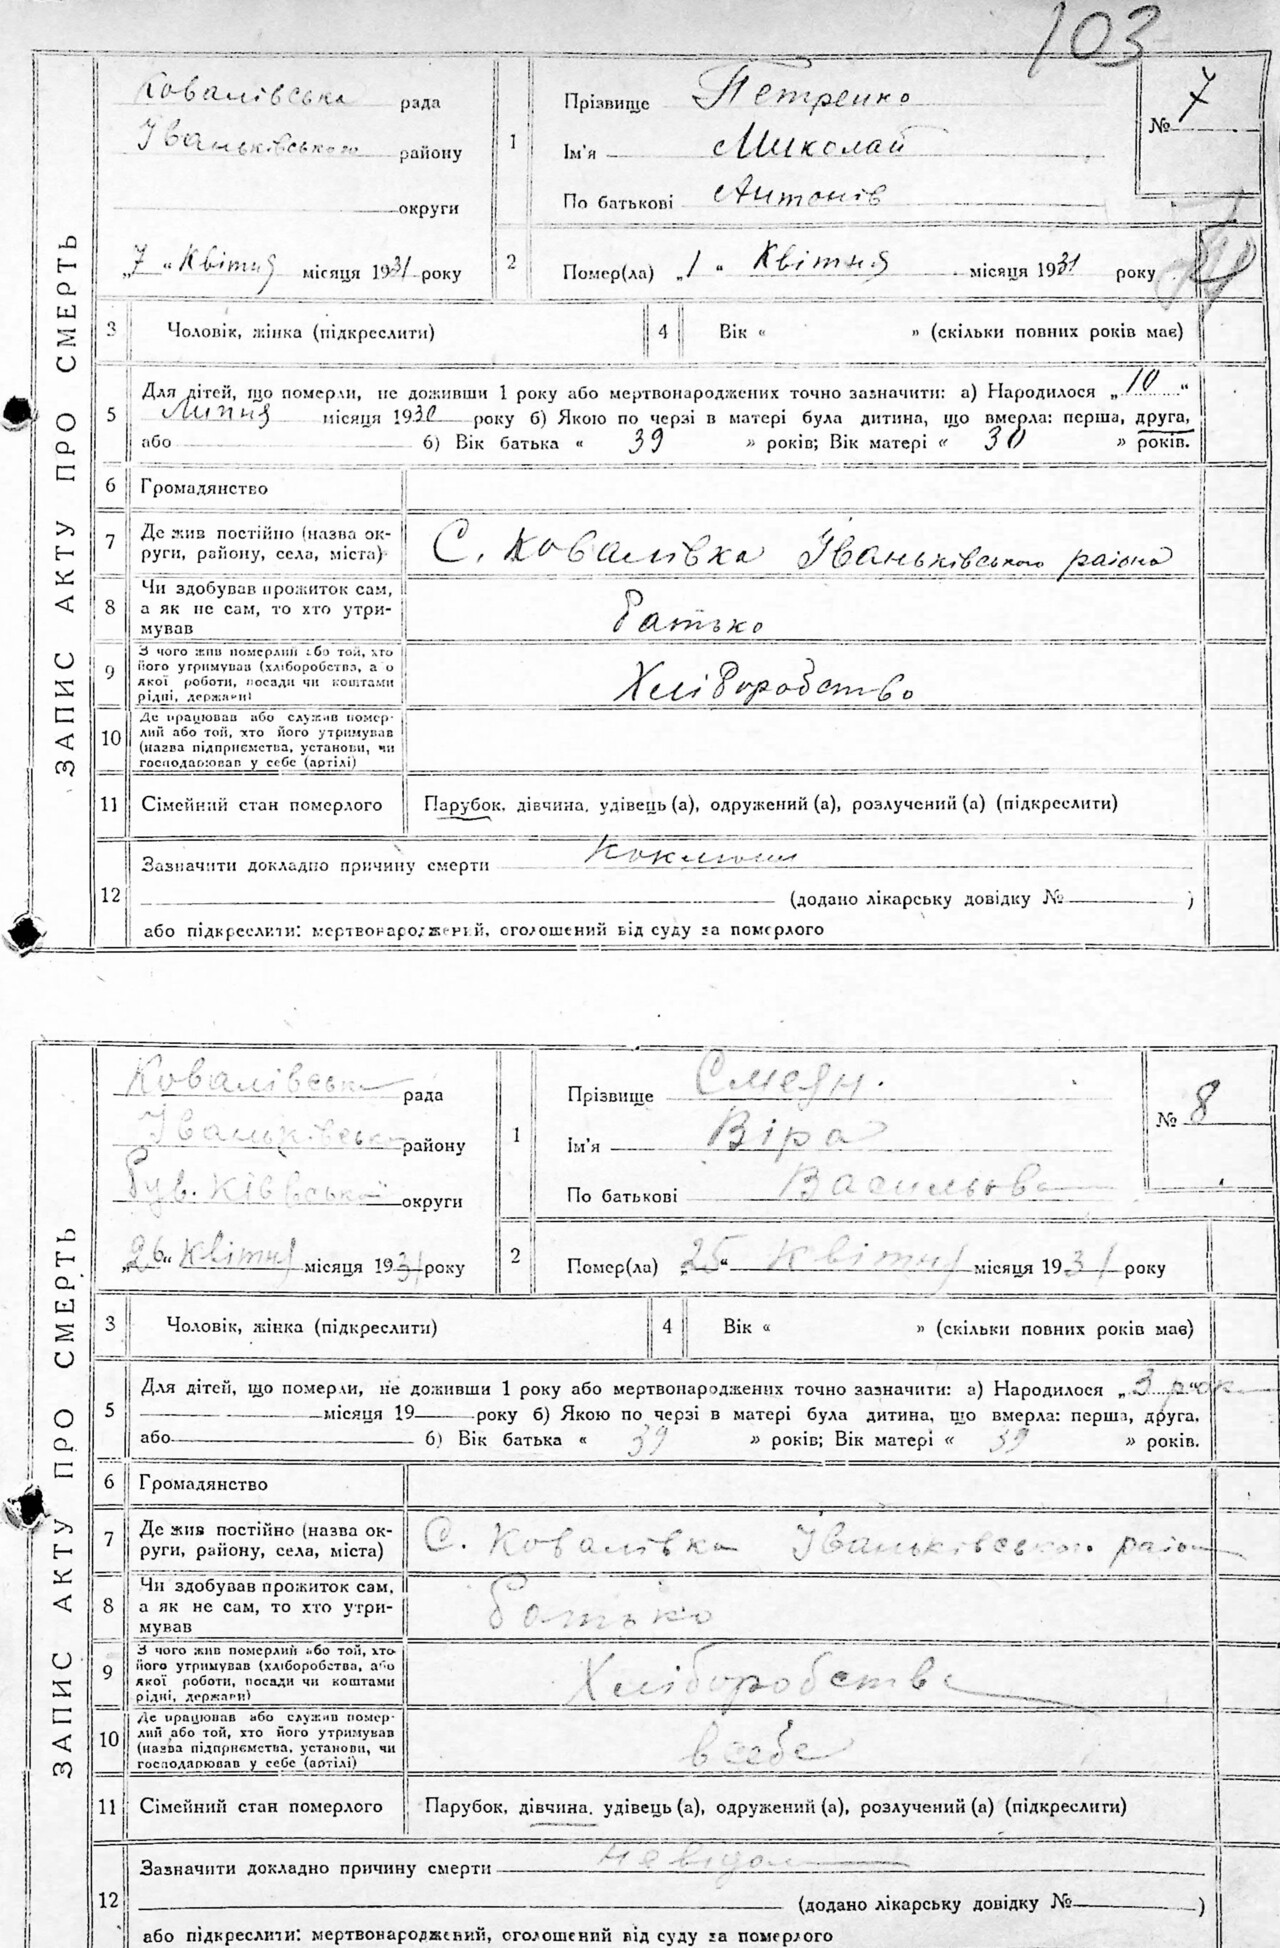 103
ЗАПИС АКТУ ПРО СМЕРТЬ
Ковалівська рада
Іваньківського району
округи
„7“ Квітня місяця 1931 року
1
Прізвище Петренко
Ім'я Миколай
По батькові Антонів
№ 7
2
Помер(ла) „1“ Квітня місяця 1931 року
3 Чоловік, жінка (підкреслити)
4 Вік « » (скільки повних років має)
5 Для дітей, що померли, не доживши 1 року або мертвонароджених точно зазначити: а) Народилося „10“
Липня місяця 1930 року б) Якою по черзі в матері була дитина, що вмерла: перша, друга,
або б) Вік батька « 39 » років; Вік матері « 30 » років.
6 Громадянство
7 Де жив постійно (назва ок-
руги, району, села, міста)
С. Ковалівка Іваньківського района
8 Чи здобував прожиток сам,
а як не сам, то хто утри-
мував
батько
9 З чого жив померлий або той, хто
його утримував (хліборобства, або
якої роботи, посади чи коштами
рідні, держави)
Хліборобство
10 Де працював або служив помер-
лий або той, хто його утримував
(назва підприємства, установи, чи
господарював у себе (артілі)
11 Сімейний стан померлого Парубок, дівчина, удівець (а), одружений (а), розлучений (а) (підкреслити)
12 Зазначити докладно причину смерти Коклюш
(додано лікарську довідку № )
або підкреслити: мертвонароджений, оголошений від суду за померлого
ЗАПИС АКТУ ПРО СМЕРТЬ
Ковалівська рада
Іваньківська району
округи
„26“ Квітня місяця 1931 року
1
Прізвище Смеян.
Ім'я Віра
По батькові Васильова
№ 8
2
Помер(ла) „25“ Квітня місяця 1931 року
3 Чоловік, жінка (підкреслити)
4 Вік « » (скільки повних років має)
5 Для дітей, що померли, не доживши 1 року або мертвонароджених точно зазначити: а) Народилося „3 рок
місяця 19 року б) Якою по черзі в матері була дитина, що вмерла: перша, друга,
або б) Вік батька « 39 » років; Вік матері « 39 » років.
6 Громадянство
7 Де жив постійно (назва ок-
руги, району, села, міста)
С. Ковалівка Іваньківського район
8 Чи здобував прожиток сам,
а як не сам, то хто утри-
мував
батько
9 З чого жив померлий або той, хто
його утримував (хліборобства, або
якої роботи, посади чи коштами
рідні, держави)
Хліборобства
10 Де працював або служив помер-
лий або той, хто його утримував
(назва підприємства, установи, чи
господарював у себе (артілі)
всебе
11 Сімейний стан померлого Парубок, дівчина, удівець (а), одружений (а), розлучений (а) (підкреслити)
12 Зазначити докладно причину смерти невідом
(додано лікарську довідку № )
або підкреслити: мертвонароджений, оголошений від суду за померлого